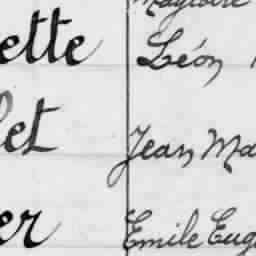 ette Léon
let Jean Ma
er Emile Eug